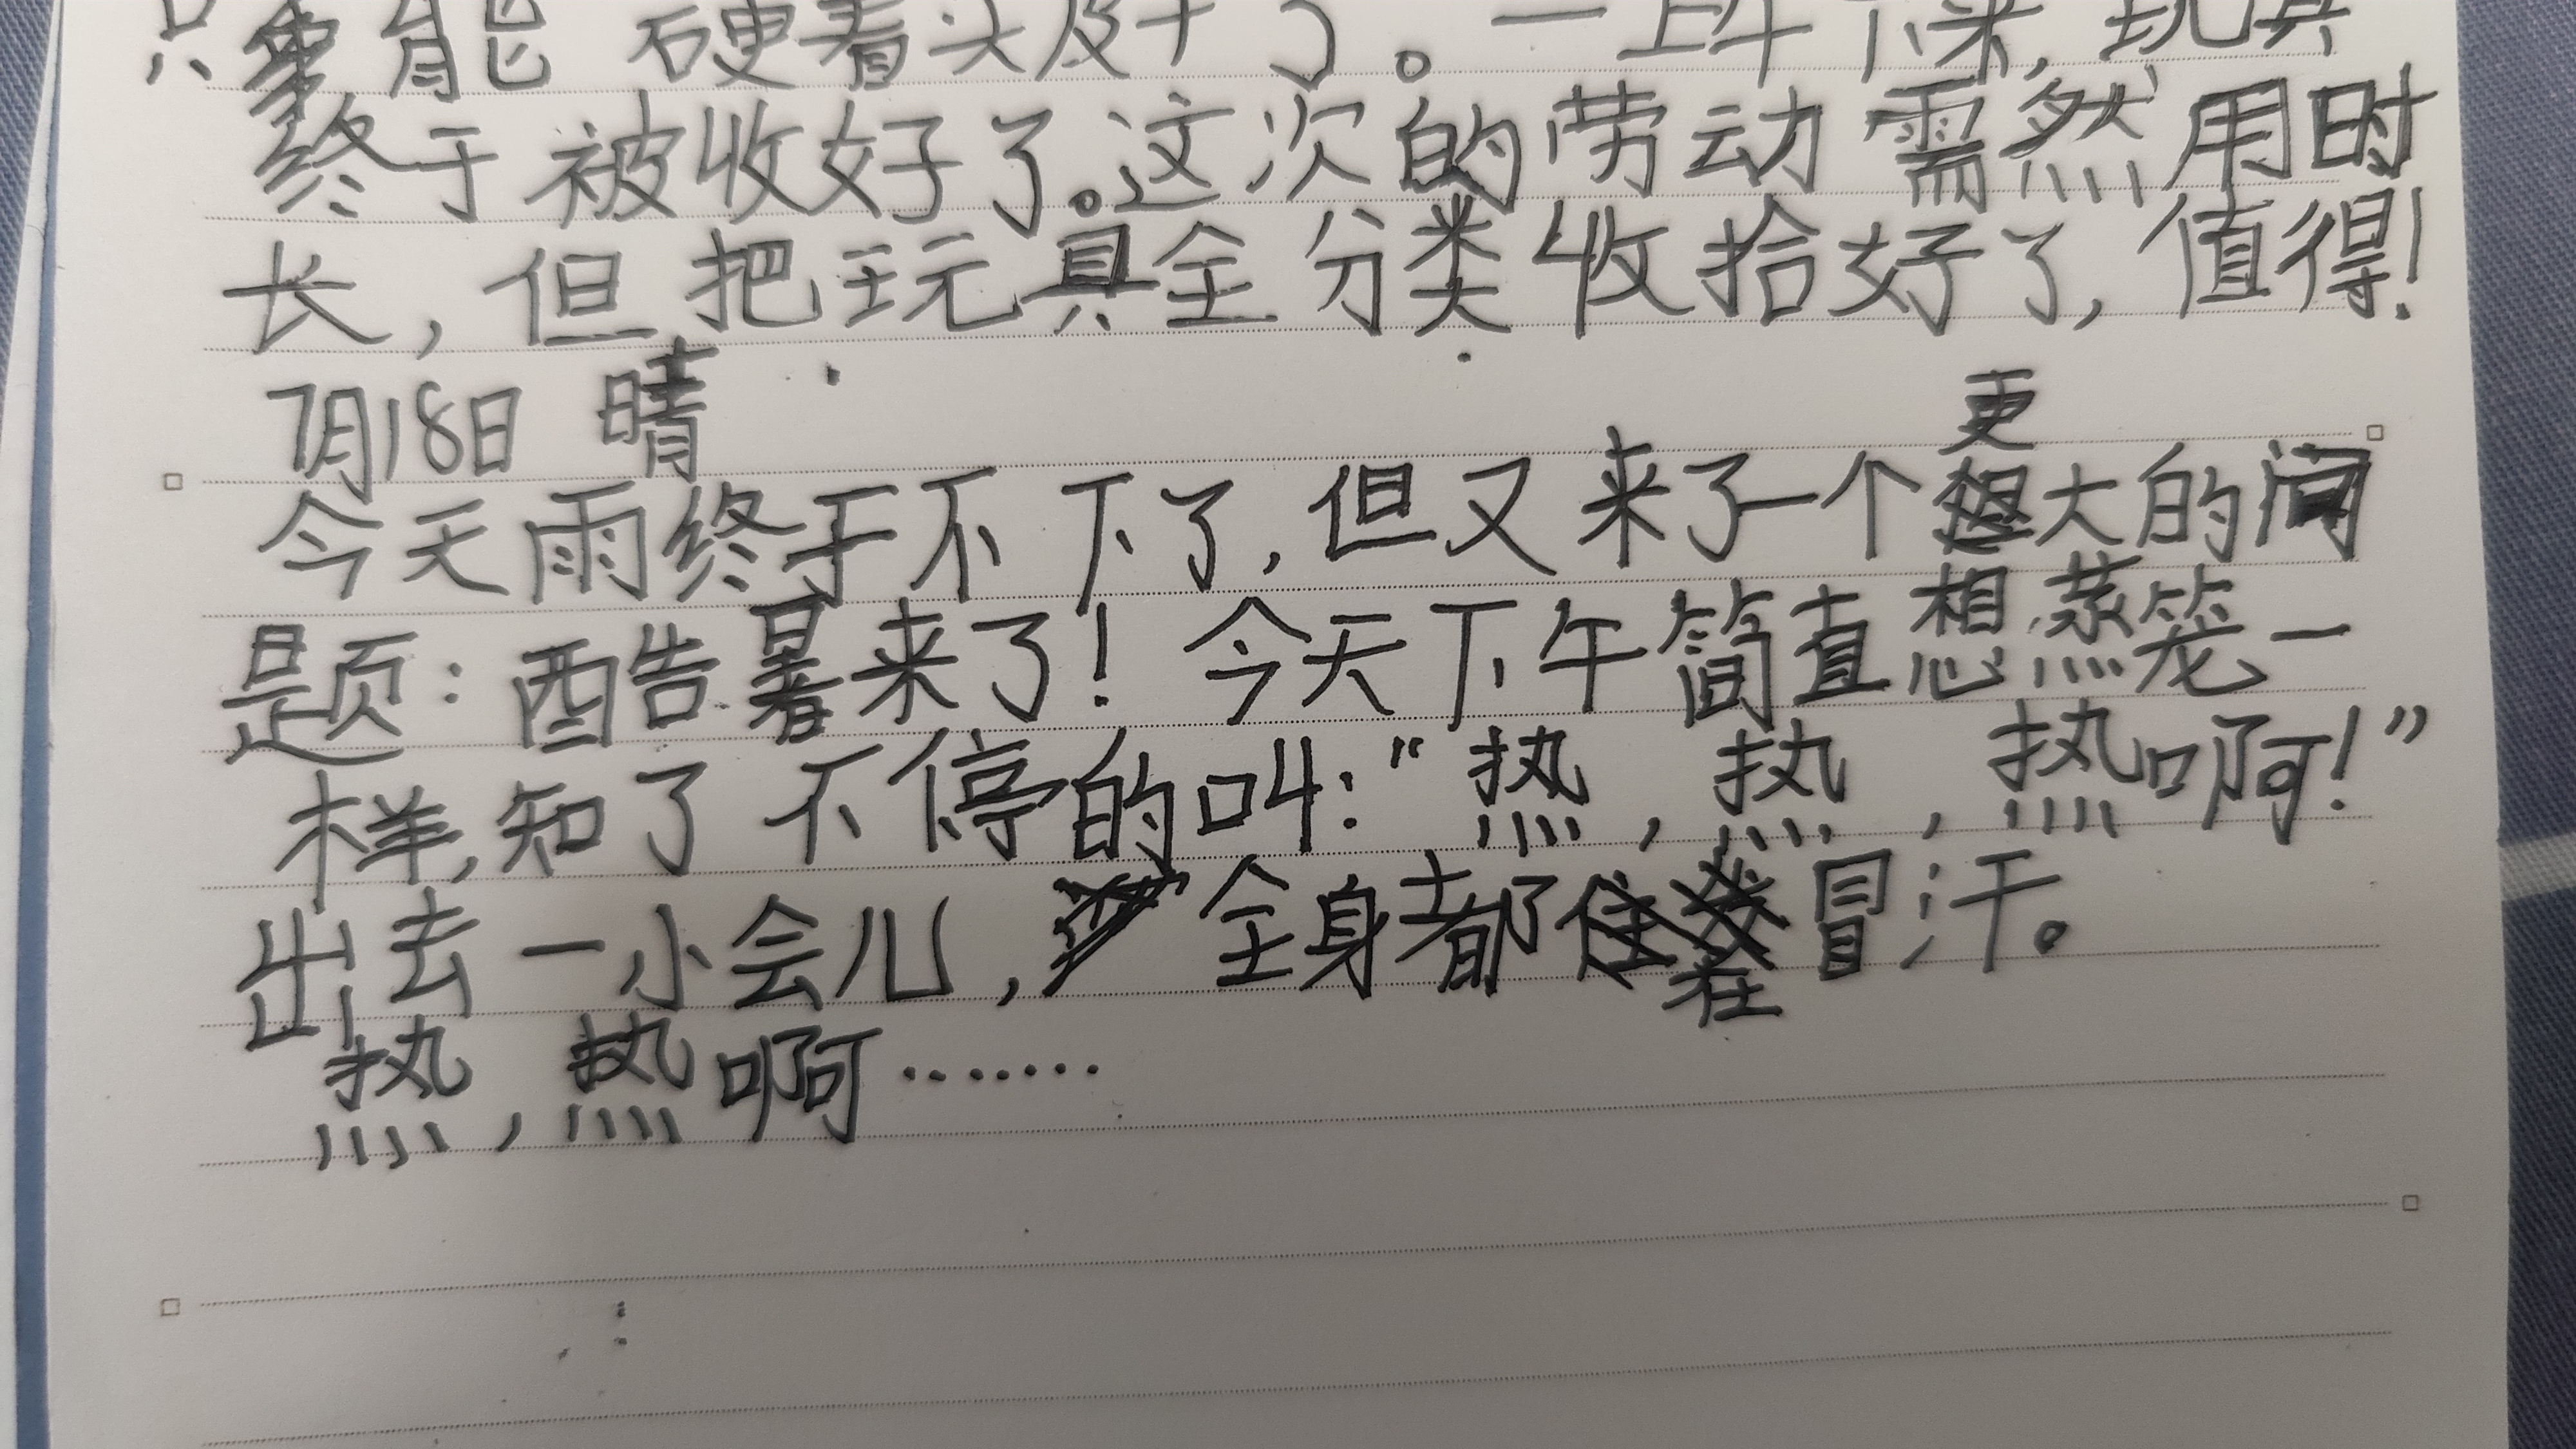 只能硬着头皮干了。一上午下来，玩具
终于被收好了。这次的劳动需然用时
长，但把玩具全分类收拾好了，值得！
7月18日 晴
今天雨终于不下了，但又来了一个更大的问
题：酷暑来了！今天下午简直想蒸笼一
样，知了不停的叫：“热，热，热啊！”
出去一小会儿，全身都在冒汗。
热，热啊·······